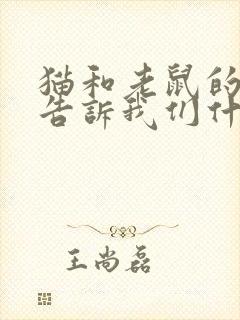 猫和老鼠的
告訴我们什
王尚磊